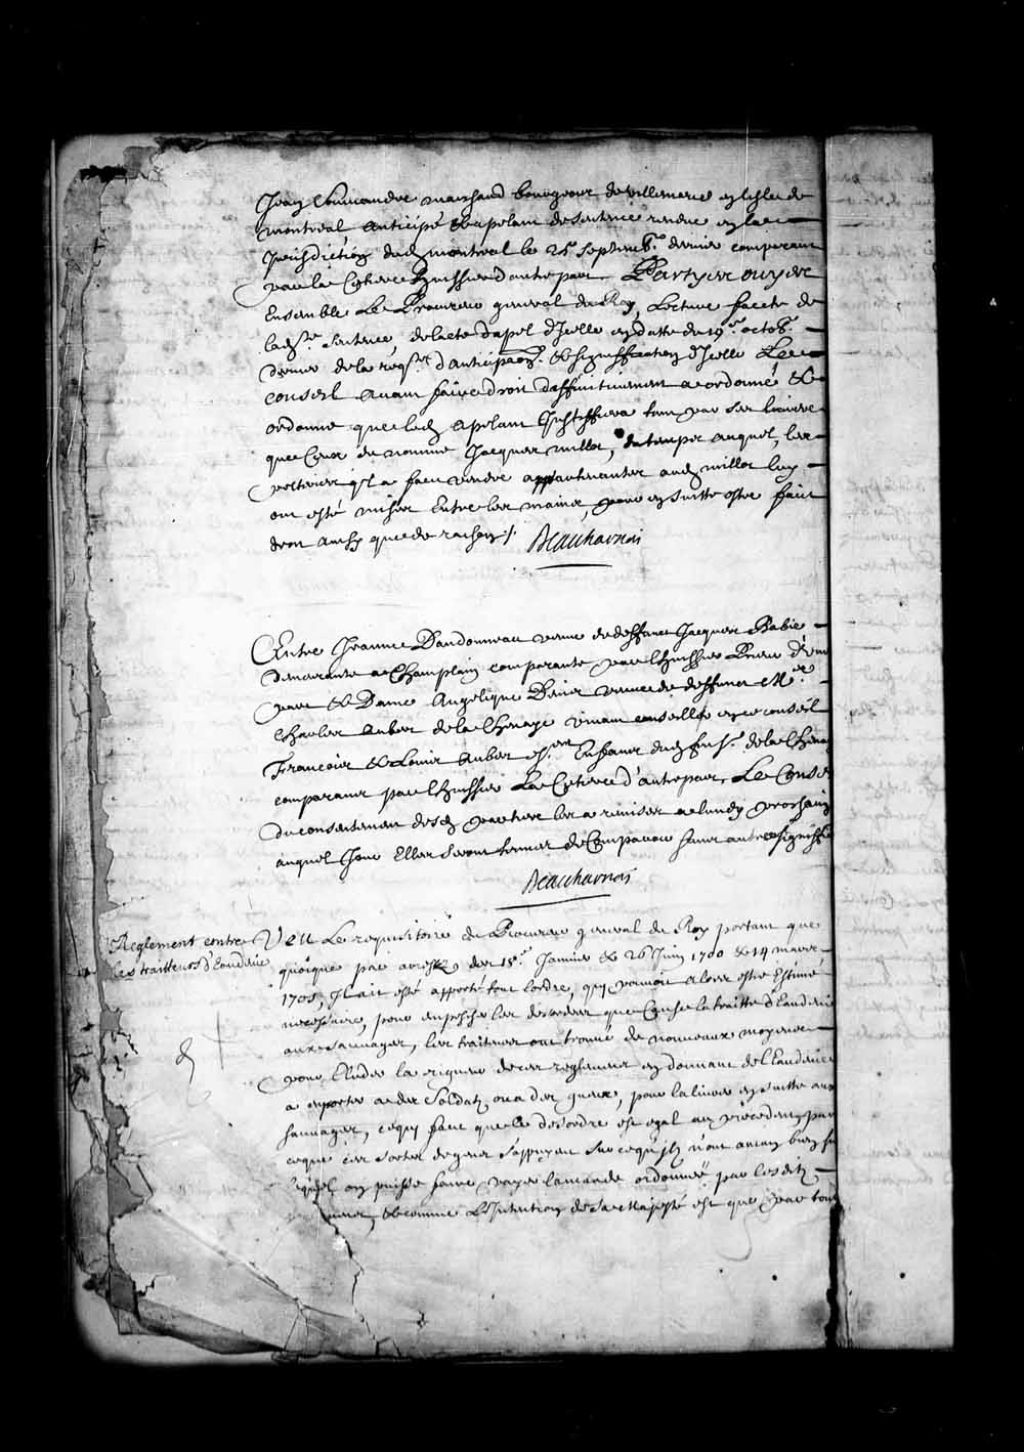 Jean Soumande marchand bourgeois de villemarie en lisle de
montreal anticipé et apelant de sentence rendue en la
jurisdiction dud montreal le 25e septembre dernier comparant
par la Cetiere huissier d'autre part Partyes ouyes
Ensemble Le Procureur general du Roy, Lecture faicte de
lad. sentence, de lacte d'apel d'Icelle en datte du 19e octob.
dernier de la req.te d'anticipaon. et signiffication d'Icelle Le
conseil avant faire droit deffinitivement a ordonné et
ordonne que led apelant Justiffiera tant par ses livres
que Ceux du nommé Jacques millet, du temps auquel, les
pelteries qu'il a faict vendre appartenantes aud millet luy
ont esté mises Entre les mains, pour en suitte estre faict
droit ainsy que de raison /.
Beauharnois
Entre Jeanne Dandonneau veuve de deffunct Jacques Babie
demeurante a Champlain comparante par l'huissier
part et Dame Angelique Denis veuve de deffunct Me.
Charles Aubert de la Chenaye vivant conseiller en ce conseil
Francois et Louis Aubert Enfans dud feu S. de la Chenaye
comparans par l'huissier La Cetiere d'autre part, Le Conseil
du consentement desd partyes les a remises a lundy prochain
auquel Jour Elles seront tenues de Comparoir sans autre signiffi
Beauharnois
Reglement entre
les traitteurs d'Eaudevie
Veu Le requisitoire du Procureur general du Roy portant que
quoique par arrests des 18e. Janvier et 26 Juin 1700 et 14 mars
1703, Il ait esté apporté tout l'ordre, qui pouvoit alors estre Estimé
necessaire, pour empescher les desordres que Cause la traitte d'Eaudevie
aux sauvages, les traiteurs ont trouvé de nouveaux moyens
pour Eluder la rigueur de ces reglemens en donnant de l'Eaudevie
a emporter a des soldats ou a des gueux, pour la livrer en suitte aux
sauvages, ce qui fait que le desordre est egal au precedent, par
ceque ces sortes de gens s'appuyent sur ce qu'ils n'ont aucun bien sur
lequel on puisse faire payer lamande ordonnée par lesdits
et comme L'Intention de sa Majesté est que par tout